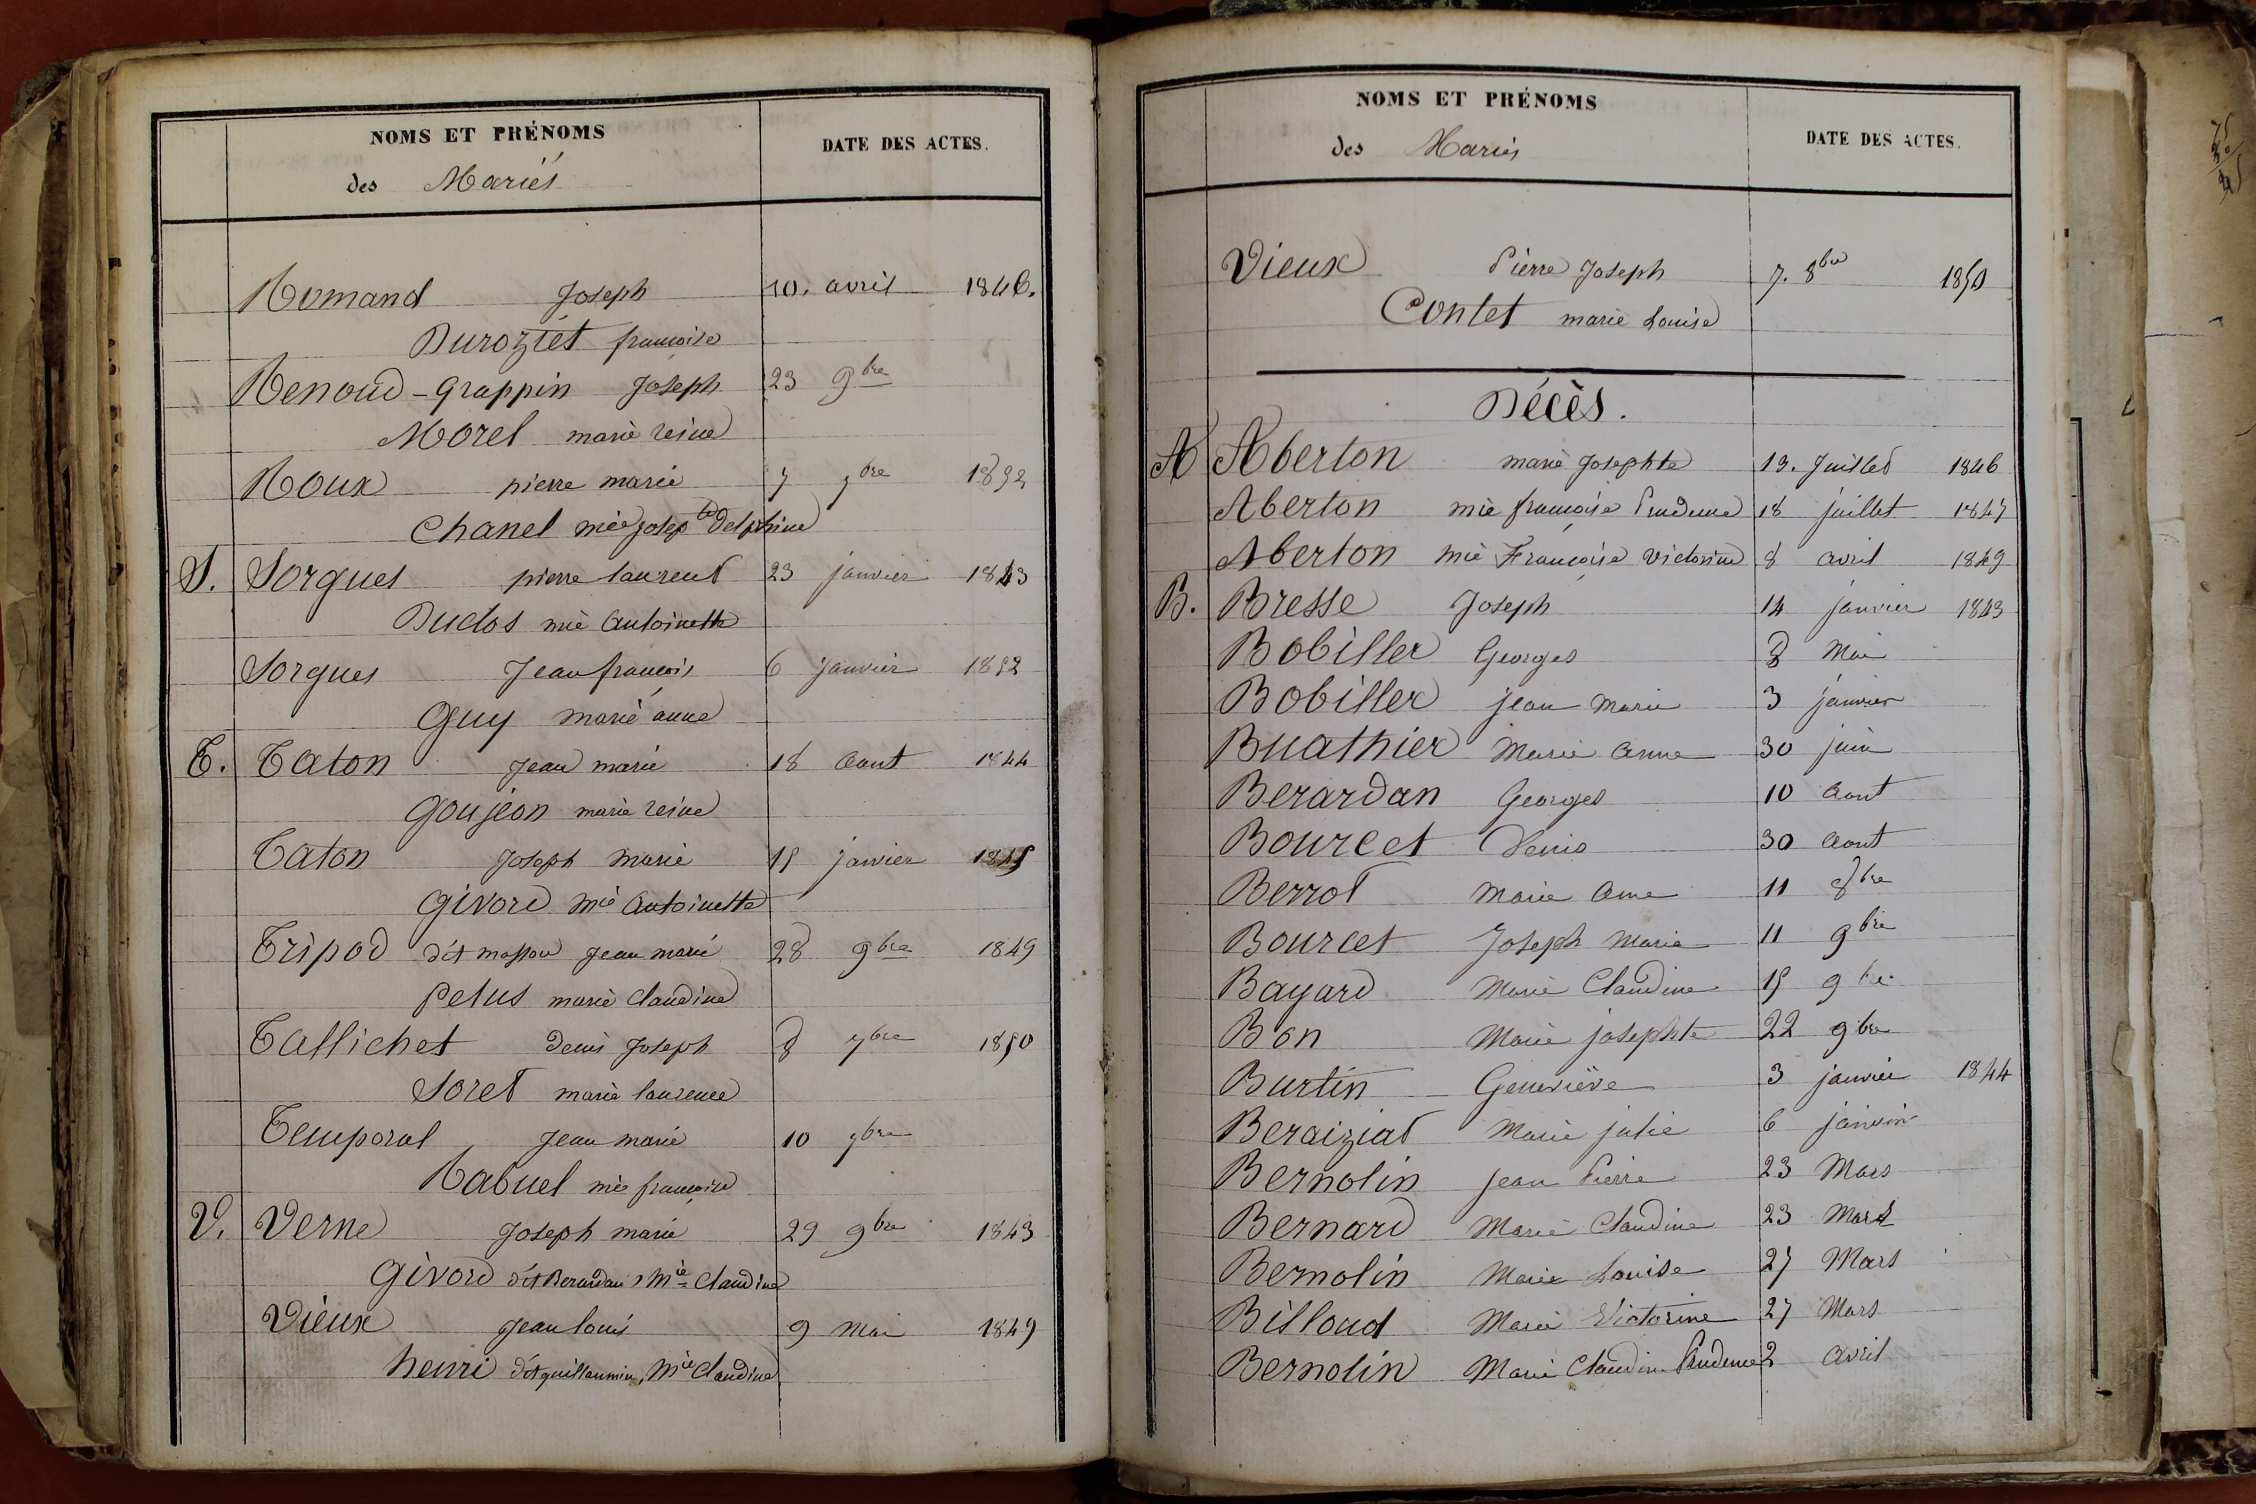 NOMS ET PRÉNOMS
des Mariés
DATE DES ACTES.
Romand Joseph 10. avril 1846.
Duroziét françoise
Renoud-Grappin Joseph 23 9bre
Morel marie reine
Roux pierre marie 7 7bre 1852
Chanel mie josepte Delphine
S. Sorgues pierre laurent 23 janvier 1843
Duclos mie Antoinette
Sorgues Jean françois 6 janvier 1852
Guy marie anne
T. Taton Jean marie 18 aout 1844
Goujeon marie reine
Taton Joseph marie 15 janvier 1845
Givord mie Antoinette
Tripod dit masson Jean marie 28 9bre 1849
Petus marie Claudine
Tallichet denis Joseph 8 7bre 1850
Soret marie laurence
Temporal Jean marie 10 7bre
Rabuel mie françoise
V. Verne Joseph marie 29 9bre 1843
Givord dit Berardan, Mie Claudine
Vieux Jean louis 9 mai 1849
henri dit guillaumin, Mie Claudine
NOMS ET PRÉNOMS
des Mariés
DATE DES ACTES.
Vieux Pierre Joseph 7. 8bre 1850
Contet marie Louise
Décès.
A Aberton marie Josephte 13. Juillet 1846
Aberton mie françoise Prudence 18 juillet 1847
Aberton mie Françoise victorine 8 avril 1849
B. Bresse Joseph 14 janvier 1843
Bobiller Georges 8 Mai
Bobiller jean Marie 3 janvier
Buathier Marie Anne 30 juin
Berardan Georges 10 Aout
Bourcet Denis 30 Aout
Berrot Marie Anne 11 8bre
Bourcet Joseph Marie 11 9bre
Bayard Marie Claudine 15 9bre
Bon Marie josephte 22 9bre
Burtin Geneviève 3 janvier 1844
Beraiziat Marie julie 6 janvier
Bernolin jean Pierre 23 Mars
Bernard Marie Claudine 23 Mars
Bernolin Marie Louise 27 Mars
Billoud Marie Victorine 27 Mars
Bernolin Marie Claudine Prudence 2 avril